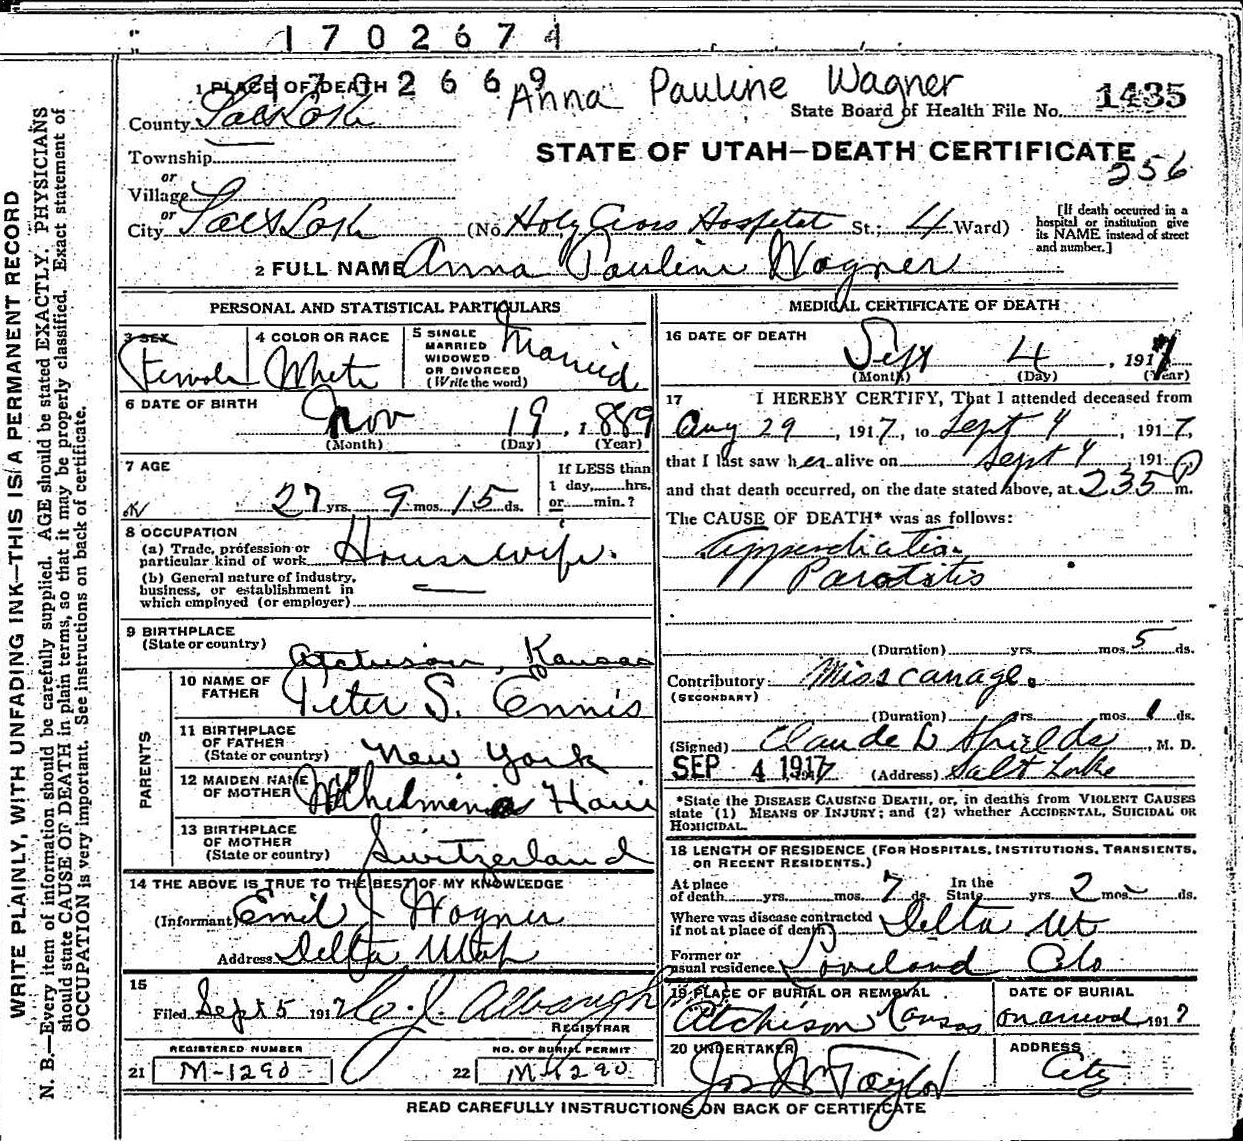 1702674
1702669
Anna Pauline Wagner
1 PLACE OF DEATH
State Board of Health File No. 1435
County Salt Lake
STATE OF UTAH—DEATH CERTIFICATE
256
Township
or
Village
or
City Salt Lake (No. Holy Cross Hospital St.; 4 Ward)
[If death occurred in a hospital or institution give its NAME instead of street and number.]
2 FULL NAME Anna Pauline Wagner
PERSONAL AND STATISTICAL PARTICULARS
3 SEX Female
4 COLOR OR RACE White
5 SINGLE MARRIED WIDOWED OR DIVORCED (Write the word) Married
6 DATE OF BIRTH
Nov 19, 1889
(Month) (Day) (Year)
7 AGE
27 yrs. 9 mos. 15 ds.
If LESS than 1 day,......hrs. or......min.?
8 OCCUPATION
(a) Trade, profession or particular kind of work Housewife.
(b) General nature of industry, business, or establishment in which employed (or employer) —
9 BIRTHPLACE
(State or country) Atchison, Kansas
PARENTS
10 NAME OF FATHER Peter S. Ennis
11 BIRTHPLACE OF FATHER (State or country) New York
12 MAIDEN NAME OF MOTHER Wilhelmenia
13 BIRTHPLACE OF MOTHER (State or country) Switzerland
14 THE ABOVE IS TRUE TO THE BEST OF MY KNOWLEDGE
(Informant) Emil J Wagner
Address Delta Utah
15
Filed Sept 5 1917 C. J. Albaugh
REGISTRAR
REGISTERED NUMBER
21 M-1290
NO. OF BURIAL PERMIT
22 M-1290
MEDICAL CERTIFICATE OF DEATH
16 DATE OF DEATH
Sept 4, 1917
(Month) (Day) (Year)
17 I HEREBY CERTIFY, That I attended deceased from
Aug 29, 1917, to Sept 4, 1917,
that I last saw her alive on Sept 4 191
and that death occurred, on the date stated above, at 235 P m.
The CAUSE OF DEATH* was as follows:
Appendicitis
Parotitis
(Duration) yrs. mos. 5 ds.
Contributory Misscarrage.
(SECONDARY)
(Duration) yrs. mos. 1 ds.
(Signed) Claude L Shields, M. D.
SEP 4 1917 (Address) Salt Lake
*State the DISEASE CAUSING DEATH, or, in deaths from VIOLENT CAUSES state (1) MEANS OF INJURY; and (2) whether ACCIDENTAL, SUICIDAL OR HOMICIDAL.
18 LENGTH OF RESIDENCE (FOR HOSPITALS, INSTITUTIONS, TRANSIENTS, OR RECENT RESIDENTS.)
At place of death yrs. mos. 7 ds. In the State yrs. 2 mos. – ds.
Where was disease contracted if not at place of death? Delta Ut
Former or usual residence Loveland Colo
19 PLACE OF BURIAL OR REMOVAL Atchison Kansas
DATE OF BURIAL on arrival 1917
20 UNDERTAKER Jos Wm Taylor
ADDRESS City
READ CAREFULLY INSTRUCTIONS ON BACK OF CERTIFICATE
WRITE PLAINLY, WITH UNFADING INK—THIS IS A PERMANENT RECORD
N. B.—Every item of information should be carefully supplied. AGE should be stated EXACTLY. PHYSICIANS
should state CAUSE OF DEATH in plain terms, so that it may be properly classified. Exact statement of
OCCUPATION is very important. See instructions on back of certificate.